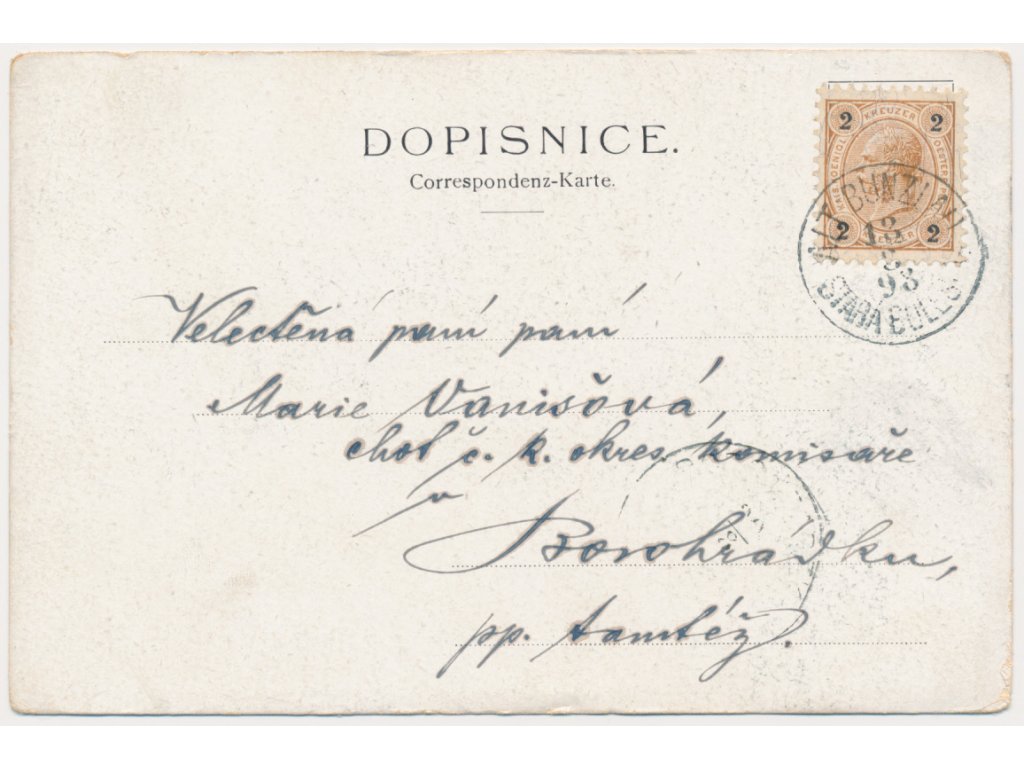 DOPISNICE.
Correspondenz-Karte.
2 KREUZER 2
2 2
ALT BUNZLAU
13
8
98
STARÁ BOLESL
Velectěná paní paní
Marie Vanišová,
choť c. k. okres. komisaře
v
Borohrádku,
pp. tamtéž.